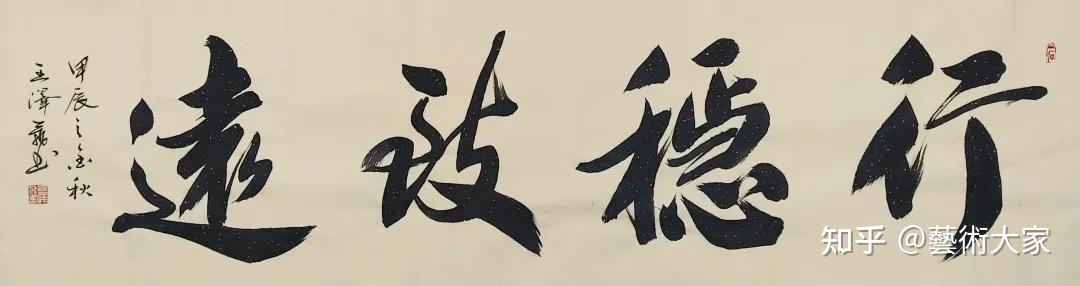 行穩致遠
甲辰之金秋
王澤書
知乎 @藝術大家